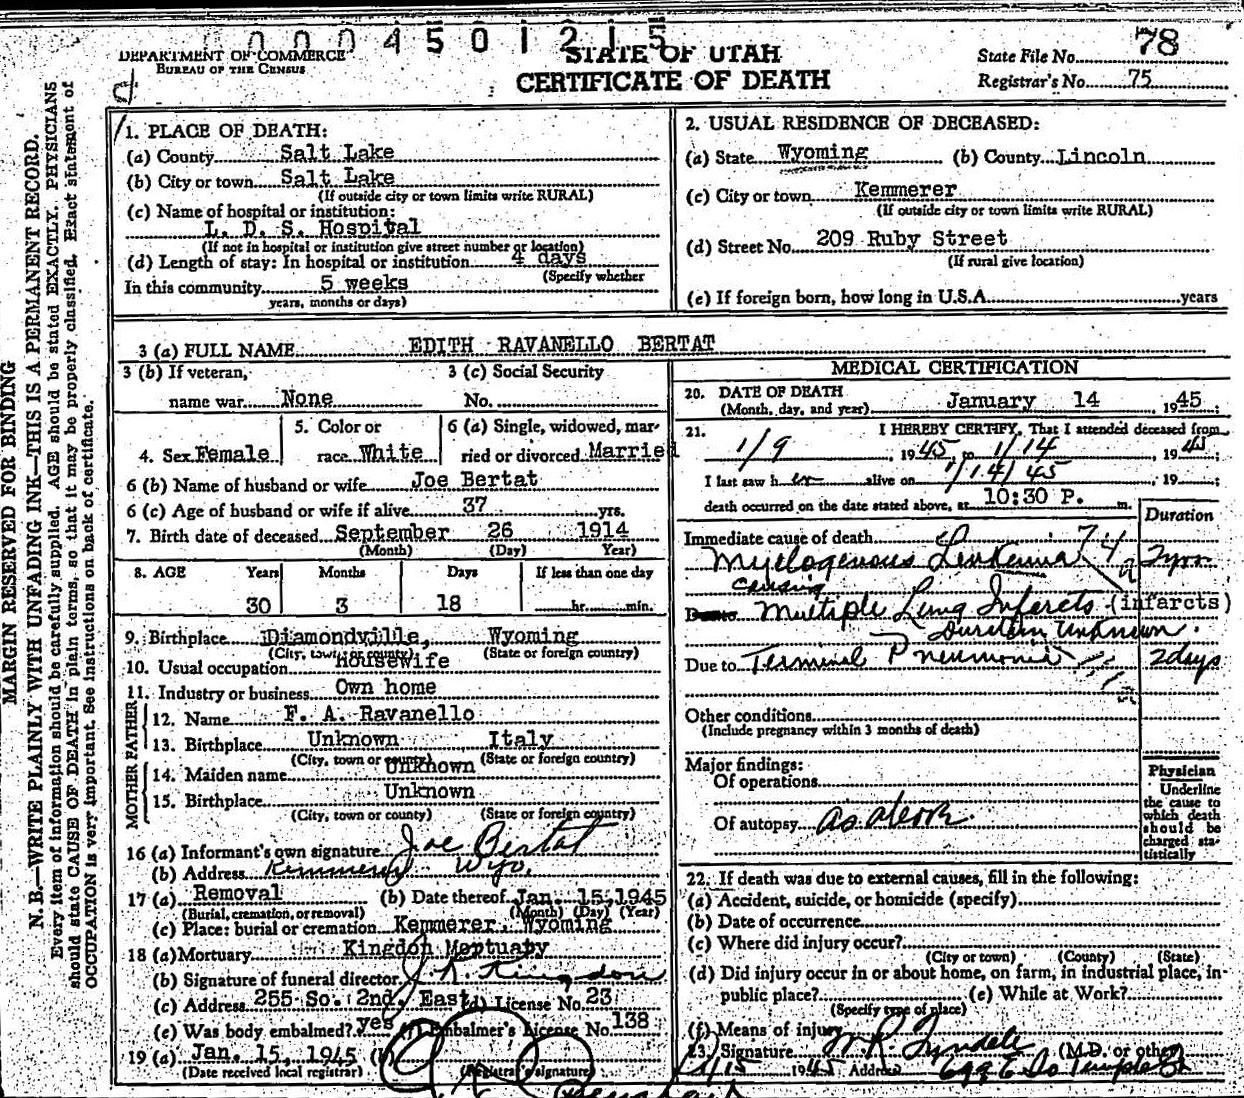 0004501215
DEPARTMENT OF COMMERCE
BUREAU OF THE CENSUS
STATE OF UTAH
CERTIFICATE OF DEATH
State File No. 78
Registrar's No. 75
MARGIN RESERVED FOR BINDING
N. B.—WRITE PLAINLY WITH UNFADING INK—THIS IS A PERMANENT RECORD.
Every item of information should be carefully supplied. AGE should be stated EXACTLY. PHYSICIANS
should state CAUSE OF DEATH in plain terms, so that it may be properly classified. Exact statement of
OCCUPATION is very important. See instructions on back of certificate.
1. PLACE OF DEATH:
(a) County Salt Lake
(b) City or town Salt Lake
(If outside city or town limits write RURAL)
(c) Name of hospital or institution:
L. D. S. Hospital
(If not in hospital or institution give street number or location)
(d) Length of stay: In hospital or institution 4 days
(Specify whether
In this community 5 weeks
years, months or days)
2. USUAL RESIDENCE OF DECEASED:
(a) State Wyoming (b) County Lincoln
(c) City or town Kemmerer
(If outside city or town limits write RURAL)
(d) Street No. 209 Ruby Street
(If rural give location)
(e) If foreign born, how long in U.S.A. years
3 (a) FULL NAME EDITH RAVANELLO BERTAT
3 (b) If veteran, 3 (c) Social Security
name war None No.
4. Sex Female 5. Color or race White 6 (a) Single, widowed, married or divorced Married
6 (b) Name of husband or wife Joe Bertat
6 (c) Age of husband or wife if alive 37 yrs.
7. Birth date of deceased September 26 1914
(Month) (Day) Year)
8. AGE Years Months Days If less than one day
30 3 18 hr. min.
9. Birthplace Diamondville, Wyoming
(City, town or county) (State or foreign country)
10. Usual occupation Housewife
11. Industry or business Own home
FATHER
12. Name F. A. Ravanello
13. Birthplace Unknown Italy
(City, town or county) (State or foreign country)
MOTHER
14. Maiden name Unknown
15. Birthplace Unknown
(City, town or county) (State or foreign country)
16 (a) Informant's own signature Joe Bertat
(b) Address Kemmerer Wyo.
17 (a) Removal (b) Date thereof Jan. 15, 1945
(Burial, cremation, or removal) (Month) (Day) (Year)
(c) Place: burial or cremation Kemmerer, Wyoming
18 (a) Mortuary Kingdon Mortuary
(b) Signature of funeral director J. K. Kingdon
(c) Address 255 So. 2nd East (d) License No. 23
(e) Was body embalmed? yes (f) Embalmer's License No. 138
19 (a) Jan. 15, 1945 (b)
(Date received local registrar) (Registrar's signature)
MEDICAL CERTIFICATION
20. DATE OF DEATH
(Month, day, and year) January 14 1945;
21. I HEREBY CERTIFY, That I attended deceased from
1/9, 1945, to 1/14 1945
I last saw her alive on 1/14/45, 19 ;
death occurred on the date stated above, at 10:30 P. m.
Duration
Immediate cause of death 74a
Myelogenous Leukemia 2 yrs
causing
Due to Multiple Lung Infarcts (infarcts)
Duration Unknown.
Due to Terminal Pneumonia 2 days
Other conditions
(Include pregnancy within 3 months of death)
Major findings:
Of operations
Of autopsy as above.
Physician
Underline
the cause to
which death
should be
charged sta-
tistically
22. If death was due to external causes, fill in the following:
(a) Accident, suicide, or homicide (specify)
(b) Date of occurrence
(c) Where did injury occur?
(City or town) (County) (State)
(d) Did injury occur in or about home, on farm, in industrial place, in
public place? (e) While at Work?
(Specify type of place)
(f) Means of injury
23. Signature W R Tyndale (M.D. or other)
1/15 1945 Address 699 E So Temple St